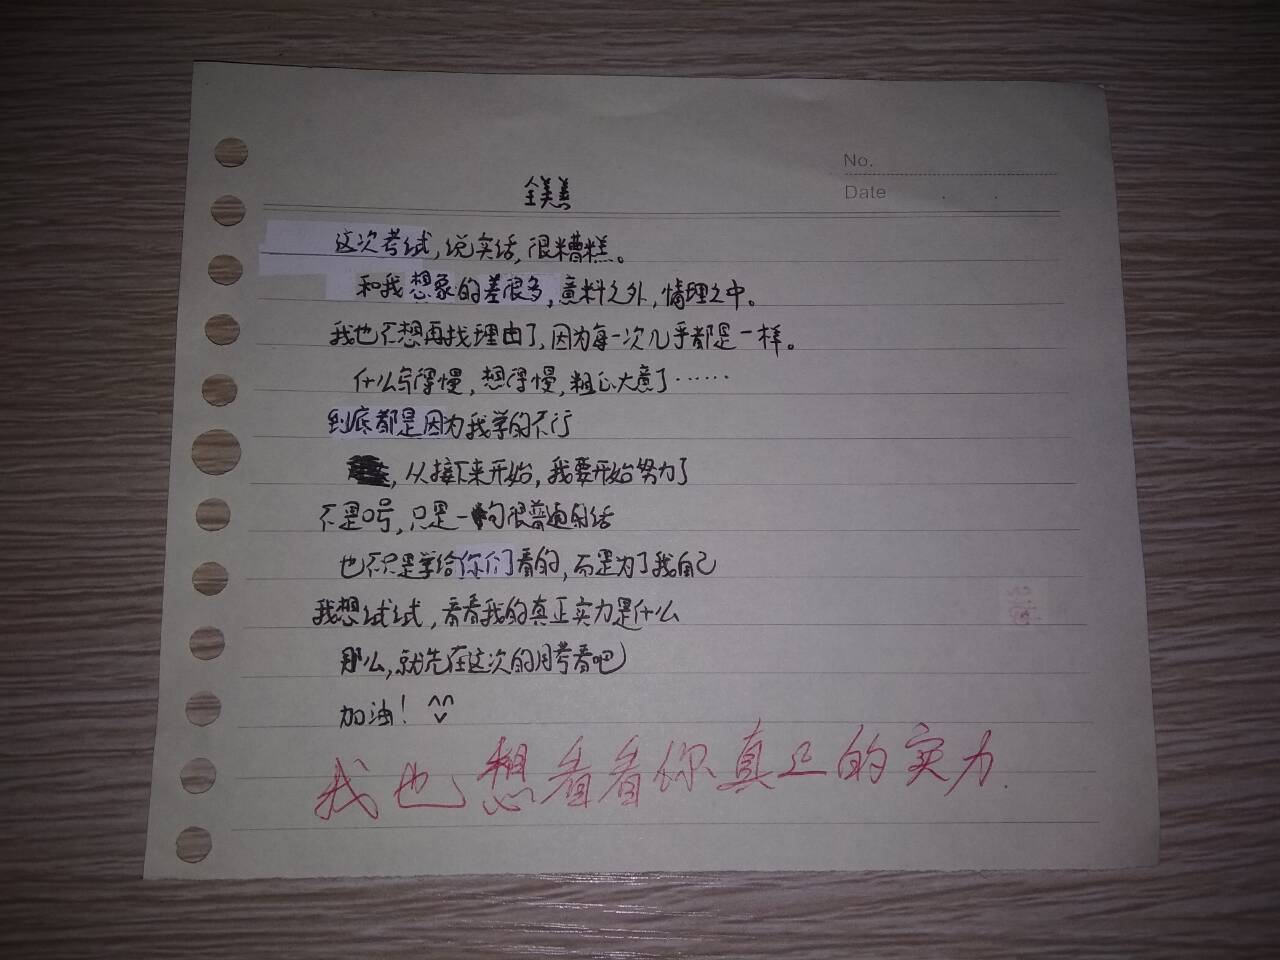 No.
Date
全美善
这次考试，说实话，很糟糕。
和我想象的差很多，意料之外，情理之中。
我也不想再找理由了，因为每一次几乎都是一样。
什么写得慢，想得慢，粗心大意了……
到底都是因为我学的不行
，从接下来开始，我要开始努力了
不是口号，只是一句很普通的话
也不只是学给你们看的，而是为了我自己
我想试试，看看我的真正实力是什么
那么，就先在这次的月考看吧
加油！^^
我也想看看你真正的实力.